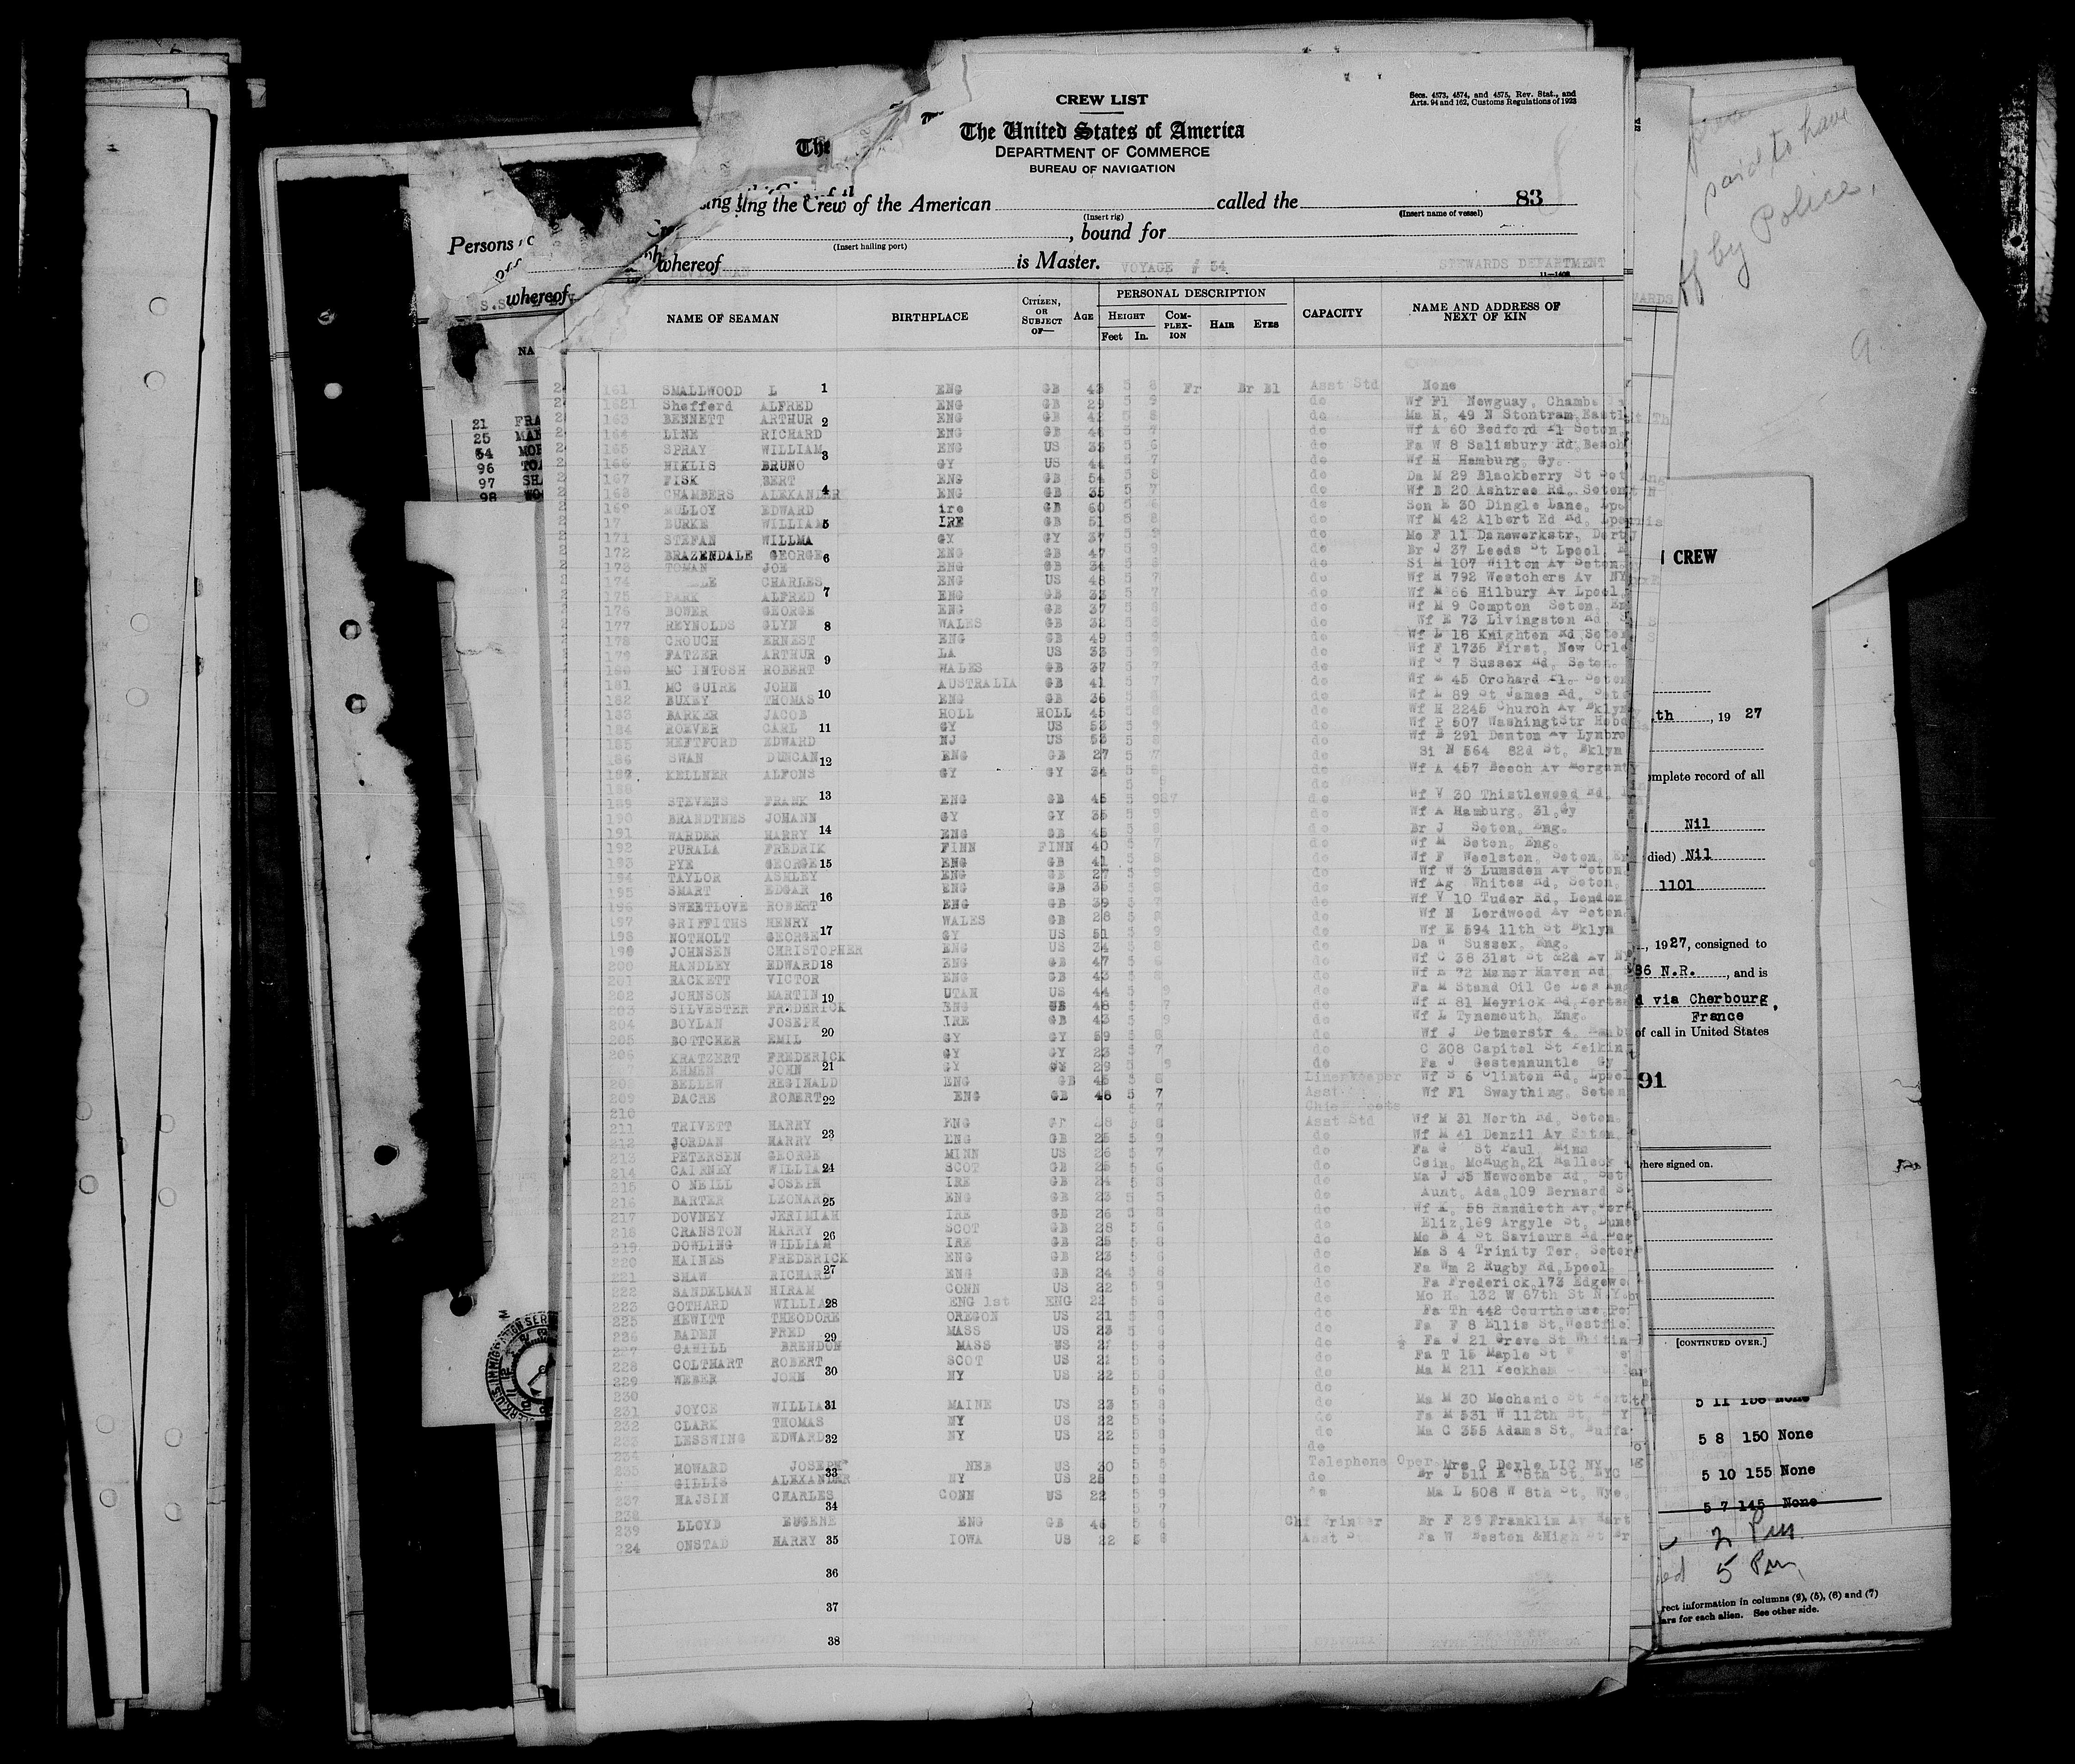 CREW LIST
Secs. 4573, 4574, and 4575, Rev. Stat., and
Arts. 94 and 162, Customs Regulations of 1923
The United States of America
DEPARTMENT OF COMMERCE
BUREAU OF NAVIGATION
the Crew of the American called the 83
(Insert rig) (Insert name of vessel)
, bound for
(Insert hailing port)
whereof is Master. VOYAGE # 54 STEWARDS DEPARTMENT
11—1408
NAME OF SEAMAN BIRTHPLACE CITIZEN, OR SUBJECT OF— AGE PERSONAL DESCRIPTION HEIGHT Feet In. COMPLEXION HAIR EYES CAPACITY NAME AND ADDRESS OF NEXT OF KIN
161 SMALLWOOD L 1 ENG GB 43 5 8 Fr Br Bl Asst Std None
Shefferd ALFRED ENG GB 29 5 9 do Wf Fl Newguay, Chambe
163 BENNETT ARTHUR 2 ENG GB 42 5 8 do Ma H, 49 N Stontram, Eastl
164 LINE RICHARD ENG GB 46 5 7 do Wf A 60 Bedford Pl Soton
165 SPRAY WILLIAM 3 ENG US 33 5 6 do Fa W 8 Salisbury Rd, Beach
166 NIKLIS BRUNO GY US 44 5 7 do Wf H Hamburg, Gy.
167 FISK BERT ENG GB 54 5 8 do Da M 29 Blackberry St Sot
168 CHAMBERS ALEXANDER 4 ENG GB 35 5 7 do Wf B 20 Ashtree Rd, Soton
169 MULLOY EDWARD ire GB 60 5 6 do Son E 30 Dingle Lane, Lpo
17 BURKE WILLIAM 5 IRE GB 51 5 8 do Wf M 42 Albert Ed Rd, Lpo
171 STEFAN WILLMA GY GY 37 5 9 do Mo F 11 Danewerkstr, Dort
172 BRAZENDALE GEORGE 6 ENG GB 47 5 9 do Br J 37 Leeds St Lpool,
173 TOMAN JOE ENG GB 34 5 do Si M 107 Wilton Av Soton,
174 CHARLES ENG US 48 5 7 do Wf M 792 Westchers Av NY
175 PARK ALFRED 7 ENG GB 33 5 7 do Wf M 66 Hilbury Av Lpool,
176 BOWER GEORGE ENG GB 37 5 8 do Wf M 9 Compton Soton, En
177 REYNOLDS GLYN 8 WALES GB 32 5 8 do Wf E 73 Livingston Rd
178 CROUCH ERNEST ENG GB 49 5 8 do Wf L 18 Knighton Rd, Soton
179 FATZER ARTHUR 9 LA US 33 5 9 do Wf F 1735 First, New Orle
180 MC INTOSH ROBERT WALES GB 37 5 7 do Wf 7 Sussex Rd, Soton.
181 MC GUIRE JOHN AUSTRALIA GB 41 5 7 do Wf E 45 Orchard Pl, Soton
182 BUXEY THOMAS 10 ENG GB 36 5 8 do Wf L 89 St James Rd, Soto
183 BARKER JACOB HOLL HOLL 45 5 8 do Wf H 2245 Church Av Bklyn
184 ROEVER CARL 11 GY US 53 5 9 do Wf P 507 WashingtStr Hobo
185 HEFTFORD EDWARD NJ US 53 5 8 do Wf B 291 Denton Av Lynbro
186 SWAN DUNCAN 12 ENG GB 27 5 7 do Si N 564 82d St, Bklyn
187 KELLNER ALFONS GY GY 34 5 8 do Wf A 457 Beech Av Morgant
188
189 STEVENS FRANK 13 ENG GB 45 5 9 do Wf V 30 Thistlewood Rd,
190 BRANDTNES JOHANN GY GY 35 5 9 do Wf A Hamburg, 31, Gy
191 WARDER HARRY 14 ENG GB 45 5 8 do Br J Soton, Eng.
192 PURALA FREDRIK FINN FINN 40 5 7 do Wf M Soton, Eng.
193 PYE GEORGE 15 ENG GB 41 5 8 do Wf F Woolston, Soton, En
194 TAYLOR ASHLEY ENG GB 27 5 9 do Wf W 3 Lumsden Av Soton
195 SMART EDGAR ENG GB 35 5 8 do Wf Ag Whites Rd, Soton,
196 SWEETLOVE ROBERT 16 ENG GB 39 5 7 do Wf V 10 Tudor Rd, London
197 GRIFFITHS HENRY WALES GB 28 5 8 do Wf N Lordwood Av Soton
198 NOTHOLT GEORGE 17 GY US 51 5 9 do Wf E 594 11th St Bklyn
199 JOHNSEN CHRISTOPHER ENG US 34 5 8 do Da W Sussex, Eng.
200 HANDLEY EDWARD 18 ENG GB 47 5 6 do Wf C 38 31st St &2d Av NY
201 RACKETT VICTOR ENG GB 43 5 8 do Wf E 72 Manor Haven Rd,
202 JOHNSON MARTIN 19 UTAH US 44 5 9 do Fa M Stand Oil Co Los Ang
203 SILVESTER FREDERICK ENG GB 48 5 7 do Wf R 81 Meyrick Rd, Ports
204 BOYLAN JOSEPH IRE GB 43 5 9 do Wf L Tynemouth, Eng.
205 BOTTCHER EMIL 20 GY GY 59 5 8 do Wf J Detmerstr 4, Hambu
206 KRATZERT FREDERICK GY GY 23 5 7 do C 308 Capitol St Peikin
EHMEN JOHN 21 GY GY 29 5 9 do Fa J Gestennuntle Gy
208 BELLEW REGINALD ENG GB 45 5 8 Linenkeeper Wf S 6 Clinton Rd, Lpool
209 DACRE ROBERT 22 ENG GB 48 5 7 Asst Wf Fl Swaything, Soton
210 5 7 Chie
211 TRIVETT HARRY ENG 28 5 8 Asst Std Wf M 31 North Rd, Soton.
212 JORDAN HARRY 23 ENG GB 25 5 9 do Wf M 41 Denzil Av Soton,
213 PETERSEN GEORGE MINN US 26 5 7 do Fa G St Paul, Minn
214 CAIRNEY WILLIAM 24 SCOT GB 25 5 6 do Csin, McHugh, 21 Halleck
215 O NEILL JOSEPH IRE GB 24 5 8 do Ma J 35 Newcombe Rd, Sot
216 BARTER LEONAR 25 ENG GB 23 5 5 do Aunt, Ada, 109 Bernard S
217 DOVNEY JERIMIAH IRE GB 26 5 8 do Wf K, 58 Randleth Av
218 CRANSTON HARRY SCOT GB 28 5 6 do Eliz, 169 Argyle St, Duns
219 DOWLING WILLIAM 26 IRE GB 25 5 8 do Mo B 4 St Saviours Rd
220 HAINES FREDERICK ENG GB 23 5 6 do Ma S 4 Trinity Ter, Soton
221 SHAW RICHARD 27 ENG GB 24 5 8 do Fa Wm 2 Rugby Rd, Lpool,
222 SANDELMAN HIRAM CONN US 22 5 9 do Fa Frederick, 173 Edgewo
223 GOTHARD WILLIA 28 ENG 1st ENG 22 5 6 do Mo H, 132 W 67th St N.Y.
225 HEWITT THEODORE OREGON US 21 5 8 do Fa Th 442 Courthouse, Po
226 BADEN FRED 29 MASS US 23 5 6 do Fa F 8 Ellis St, Westfiel
227 CAHILL BRENDON MASS US 2 5 8 do Fa J 21 Grove St Whitin
228 COLTHART ROBERT 30 SCOT US 21 5 6 do Fa T 15 Maple St
229 WEBER JOHN NY US 22 5 6 do Ma M 211 Peckham
230 5 6 do
231 JOYCE WILLIA 31 MAINE US 23 5 8 do Ma M 30 Mechanic St Port
232 CLARK THOMAS NY US 22 5 6 do Fa M 531 W 112th St, N Y
233 LESSWING EDWARD 32 NY US 22 5 8 do Ma C 355 Adams St, Buffa
234 5 6 do
235 HOWARD JOSEPH 33 NEB US 30 5 5 Telephone Oper Mrs C Doyle LIC NY
GILLIS ALEXANDER NY US 25 5 8 do Br J 511 E 78th St, NYC
237 HAJSIN CHARLES 34 CONN US 22 5 9 Ma L 508 W 8th St, Wyo
238 5 7
239 LLOYD EUGENE ENG GB 46 5 6 Chf Printer Br F 29 Franklin Av Hart
224 ONSTAD HARRY 35 IOWA US 22 5 6 Asst Fa W Beston &High St
36
37
38
Persons
whereof
21 FRA
25 MAN
54 MOR
96 TO
97 SHA
98 WO
said to have
by Police,
CREW
th, 19 27
complete record of all
Nil
died) Nil
1101
, 1927, consigned to
86 N.R., and is
via Cherbourg,
France
of call in United States
91
where signed on.
[CONTINUED OVER.]
5 11 150 None
5 8 150 None
5 10 155 None
5 7 145 None
2 Pm
5 Pm
rect information in columns (2), (5), (6) and (7)
ars for each alien. See other side.